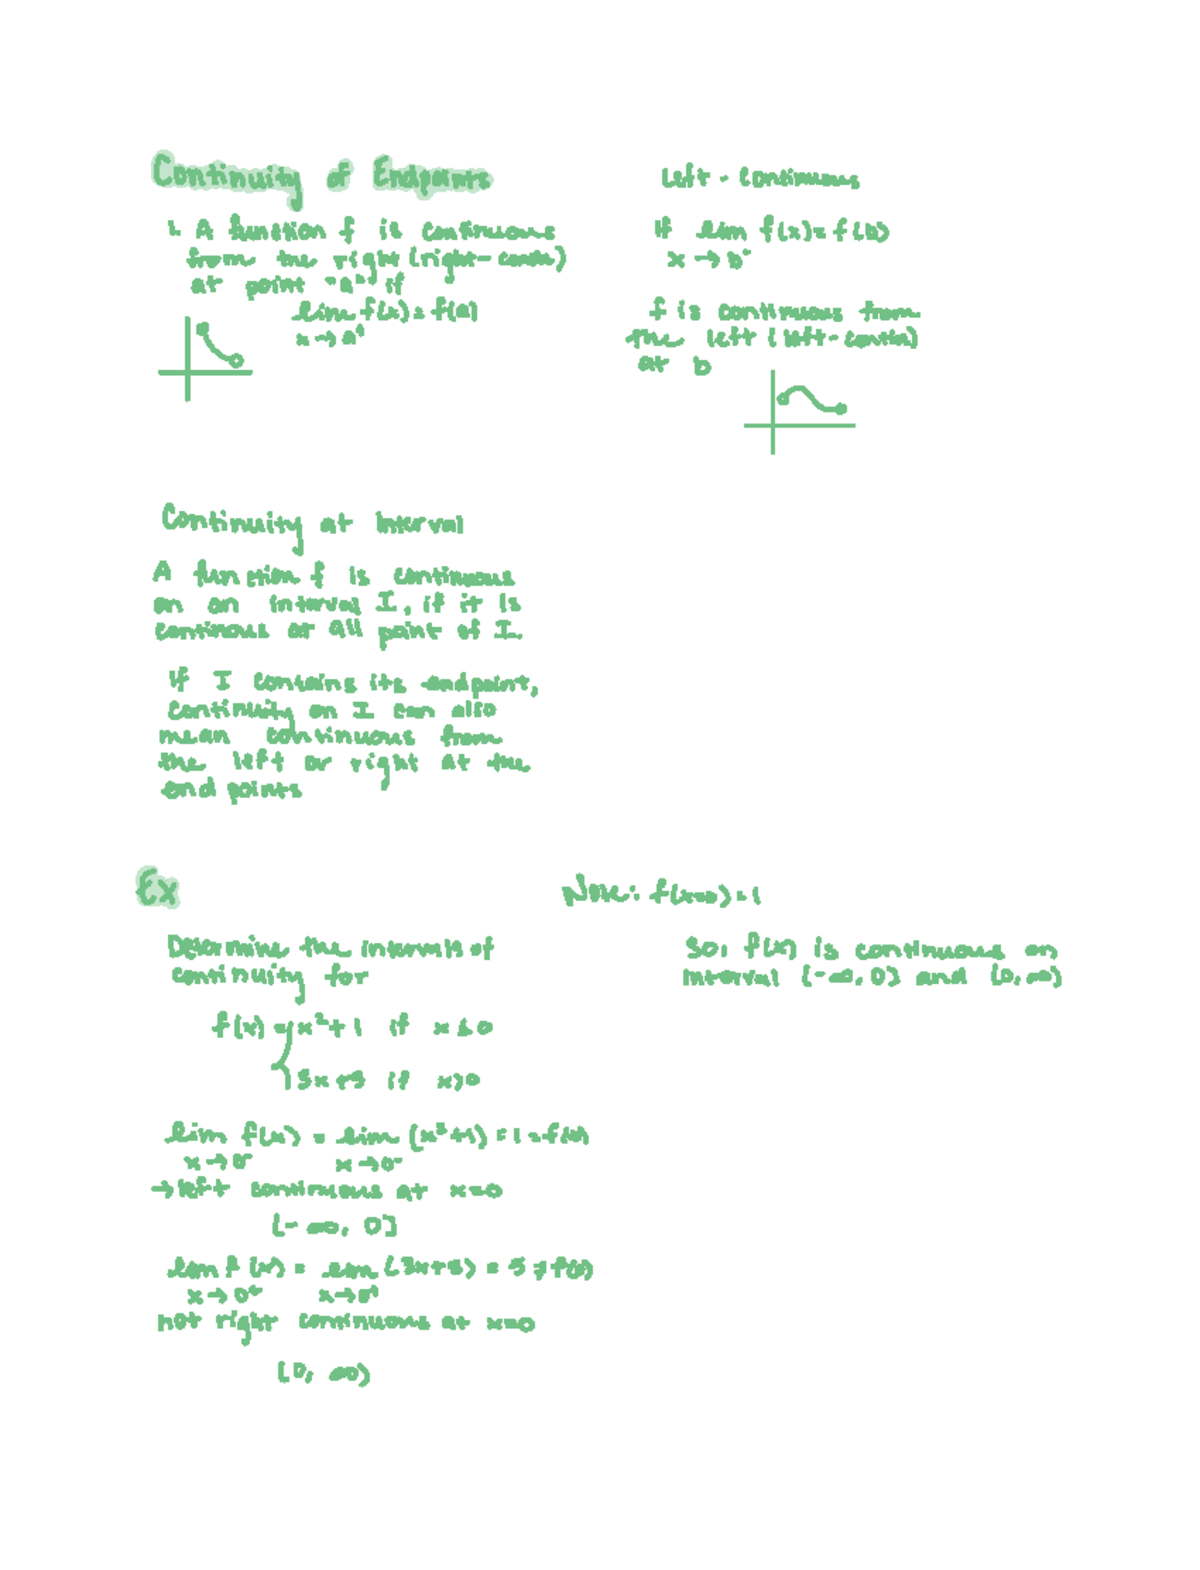 Continuity of Endpoints
1. A function f is continuous
from the right (right-contin)
at point "a" if
lim f(x) = f(a)
x → a⁺
Left - continuous
If lim f(x) = f(b)
x → b⁻
f is continuous from
the left (left-contin)
at b
Continuity at Interval
A function f is continuous
on an interval I, if it is
continous at all point of I.
If I contains its endpoint,
continuity on I can also
mean continuous from
the left or right at the
end points
Ex
Determine the intervals of
continuity for
f(x) = x² + 1 if x ≤ 0
3x + 5 if x > 0
lim f(x) = lim (x² + 1) = 1 = f(0)
x → 0⁻ x → 0⁻
→ left continuous at x = 0
(-∞, 0]
lim f(x) = lim (3x + 5) = 5 ≠ f(0)
x → 0⁺ x → 0⁺
not right continuous at x = 0
(0, ∞)
Note: f(x=0) = 1
So, f(x) is continuous on
interval (-∞, 0] and (0, ∞)